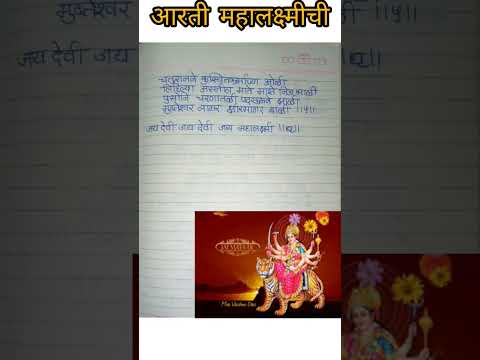 आरती महालक्ष्मीची
चतुरानने कुत्सितकर्माच्या ओळी
लिहिल्या असतील माते माझे निजभाळी
पुसोनि चरणातळी क्षाळी
मुक्तेश्वर नागर क्षीरसागर बाळी ॥५॥
जय देवी जय देवी जय महालक्ष्मी ॥धृ॥
Maa Vaishno Devi